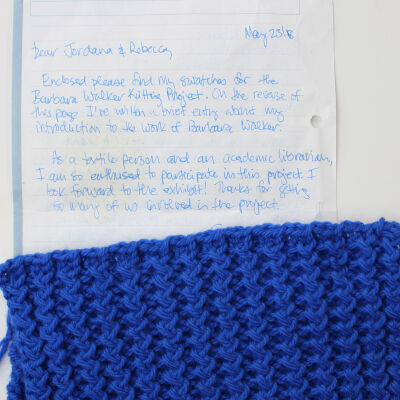 May 23/18
Dear Jordana & Rebecca,
Enclosed please find my swatches for the
Barbara Walker Knitting Project. On the reverse of
this page I've written a brief entry about my
introduction to the work of Barbara Walker.
As a textile person and an academic librarian,
I am so enthused to participate in this project. I
look forward to the exhibit! Thanks for getting
so many of us involved in the project.